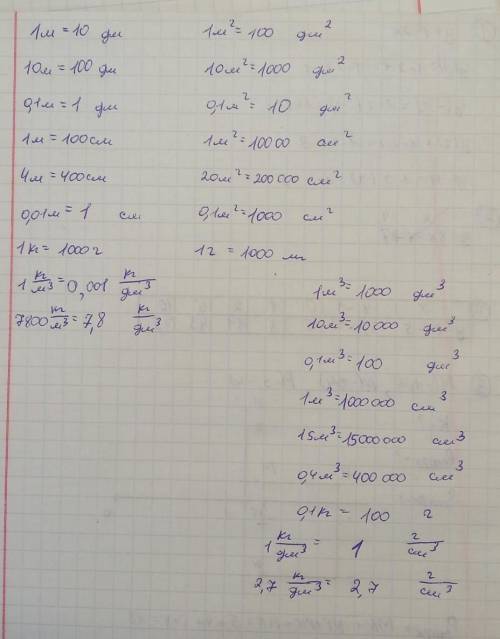 1м = 10 дм
10м = 100 дм
0,1м = 1 дм
1м = 100см
4м = 400см
0,01м = 1 см
1кг = 1000г
1 кг/м³ = 0,001 кг/дм³
7800 кг/м³ = 7,8 кг/дм³
1м² = 100 дм²
10м² = 1000 дм²
0,1м² = 10 дм²
1м² = 10000 см²
20м² = 200000 см²
0,1м² = 1000 см²
1г = 1000 мг
1м³ = 1000 дм³
10м³ = 10000 дм³
0,1м³ = 100 дм³
1м³ = 1000000 см³
15м³ = 15000000 см³
0,4м³ = 400000 см³
0,1кг = 100 г
1 кг/дм³ = 1 г/см³
2,7 кг/дм³ = 2,7 г/см³